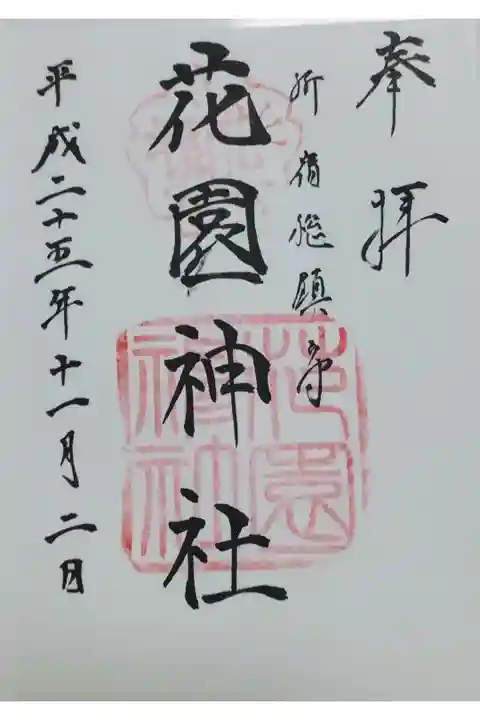 奉拝
新宿総鎮守
花園神社
花園神社
平成二十五年十一月二日